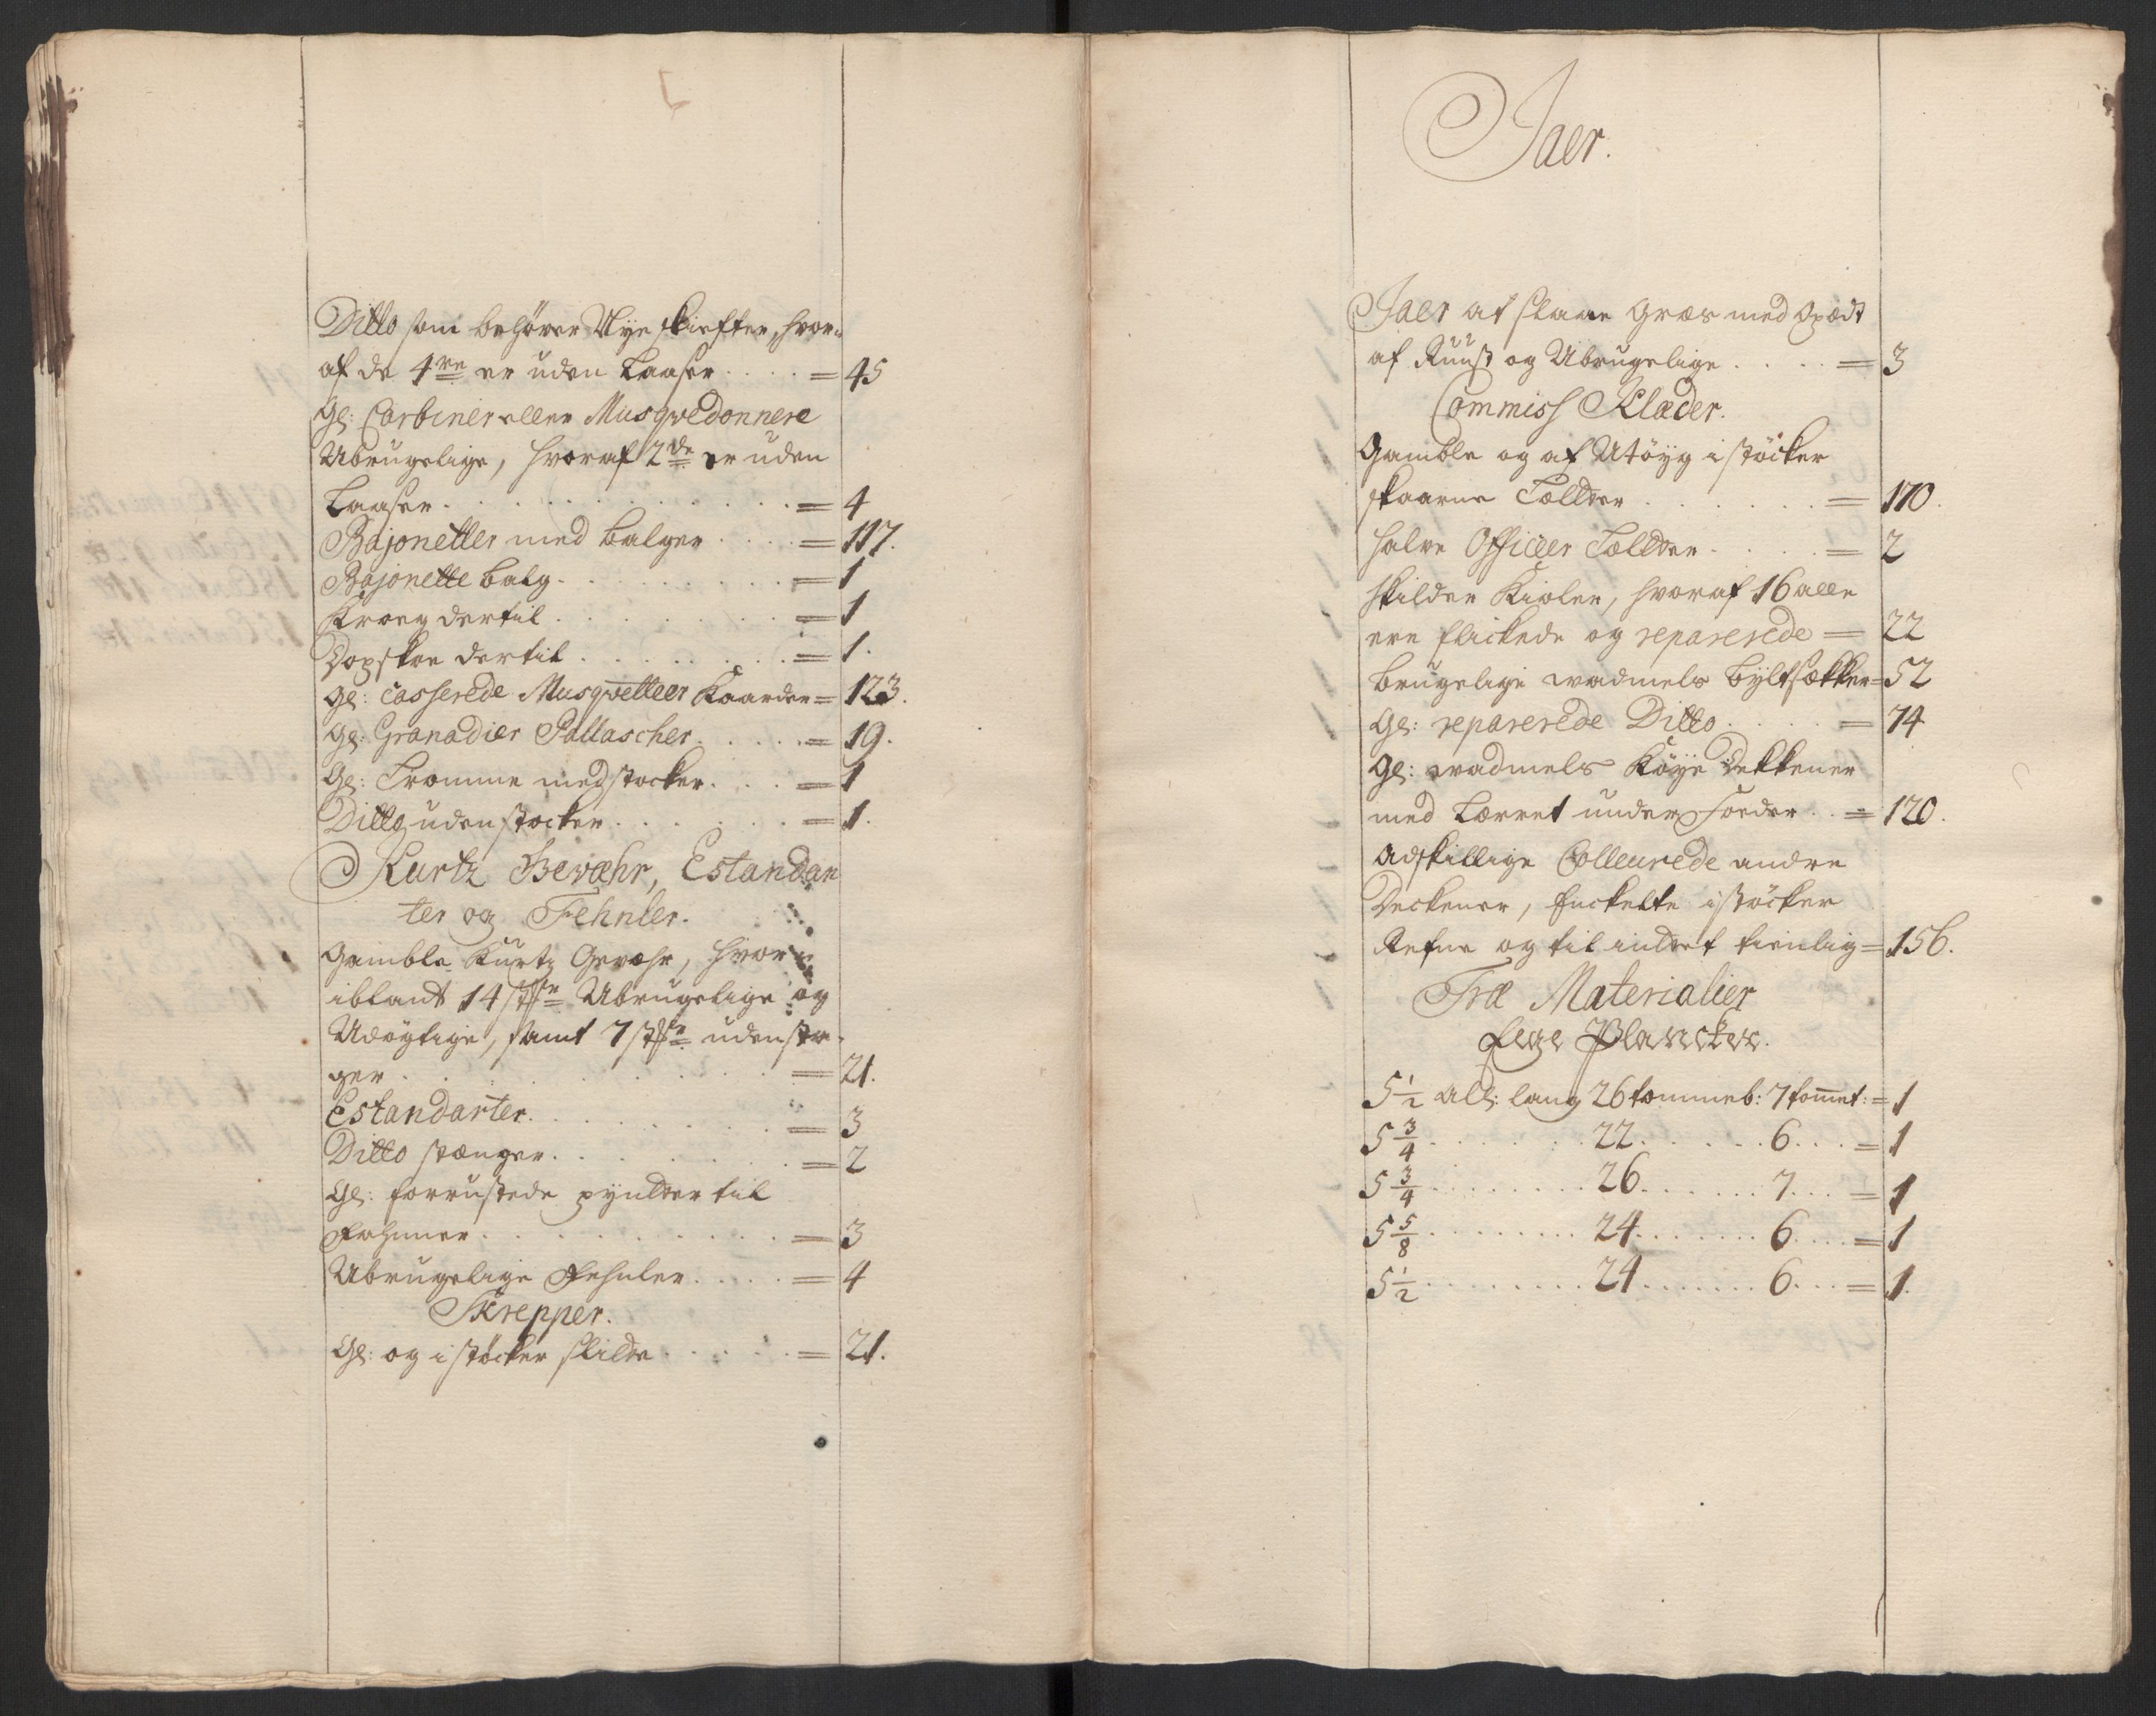 Ditto som behøver Nye skieffter, hvor-
af de 4re er uden Laaser . . . . = 45
Gl: Carbiner eller Musqvedonnere
Ubrugelige, hvoraf 2de er uden
Laaser . . . . . . . . . . = 4
Bajonetter med balger . . . . = 117.
Bajonette balg . . . . . . . . = 1
Kroeg dertil . . . . . . . . = 1
Dopskoe dertil . . . . . . . = 1.
Gl: Casserede Musqvetteer Kaarder = 123.
Gl: Granadier Pallascher . . . . . = 19.
Gl: Tromme med stocker . . . . = 1
Ditto uden stocker . . . . . . = 1.
Kurtz Gevæhr, Estandar
ter og Fehnler.
Gamble Kurtz Gevæhr, hvor
iblant 14 st Ubrugelige og
Udøgtige, samt 7 st uden sta-
ger . . . . . . . . . . . = 21.
Estandarter . . . . . . . . = 3
Ditto stænger . . . . . . . = 2
Gl: forrustede pyndter til
Fahnner . . . . . . . . . = 3
Ubrugelige Fehnler . . . . . = 4
Skrepper.
Gl: og i støcker slidte . . . . . = 21.
Jaer.
Jaer at slaae Græs med Opædt
af Ruust og Ubrugelige . . . . = 3
Commiss Klæder.
Gamble og af Utöyg i støcker
skaarne Tællter . . . . . . . = 170.
halve Officeer Tællter . . . . . = 2
skilder Kioler, hvoraf 16 alle
ere flickede og reparerede = 22
brugelige wadmels byltsækker = 52
Gl: reparerede Ditto . . . . . = 74
Gl: wadmels Köye Dekkener
med Lærret under Foeder . . = 120.
adskillige Colleurede andre
Deckener, Enckelte i støcker
Refne og til intet tienlig = 156.
Træ Materialier
Eege Plancker.
5 1/2 all: lang 26 tomme b: 7 tomme t: = 1
5 3/4 . . . . . . 22 . . . . . . 6 . . . = 1
5 3/4 . . . . . . . . 26 . . . . . . 7 . . . = 1
5 5/8 . . . . . . . . 24 . . . . . . . 6 . . . . = 1
5 1/2 . . . . . . . . 24 . . . . . . . 6 . . . = 1.